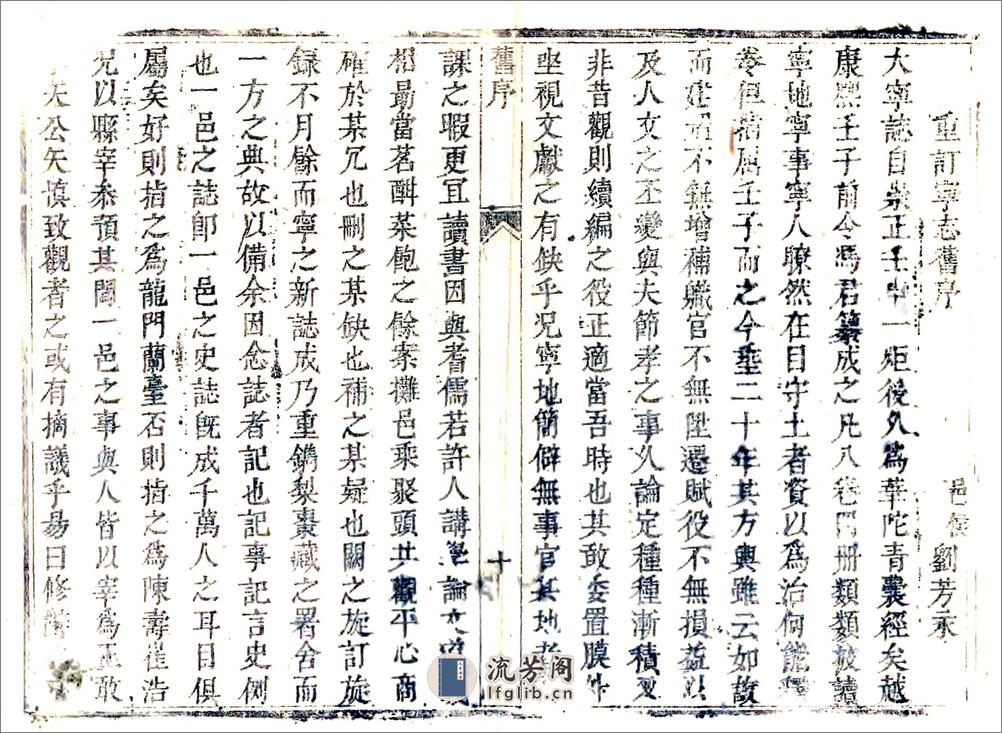 重訂寧志舊序
邑 劉芳永
大寧誌自崇正壬申一炬後久為華陀青囊經矣越
康熙壬子前令馮君纂成之凡八卷門冊類類披讀
寧地寧事寧人瞭然在目守土者資以為治何能釋
卷但 屆壬子而之今垂二十年其方輿雖云如故
而建 不無增補職官不無陞遷賦役不無損益以
及人文之丕變與夫節孝之事久論定種種漸積又
非昔觀則續編之役正適當吾時也其敢委置膜外
坐視文獻之有缺乎况寧地簡僻無事官其地者
舊序
十
課之暇更宜讀書因與耆儒若許人講學論文
相勗當茗酣菜飽之餘案攤邑乘聚頭共觀平心商
確於某冗也刪之某缺也補之某疑也闕之旋訂旋
録不月餘而寧之新誌成乃重鐫梨棗藏之署舍而
一方之典故以備余因念誌者記也記事記言史例
也一邑之誌卽一邑之史誌旣成千萬人之耳目俱
屬矣好則指之為龍門蘭臺否則指之為陳壽崔浩
况以縣宰叅預其間一邑之事與人皆以宰為正敢
矢公矢慎致觀者之或有摘議乎易曰修
流芳阁
lfglib.cn